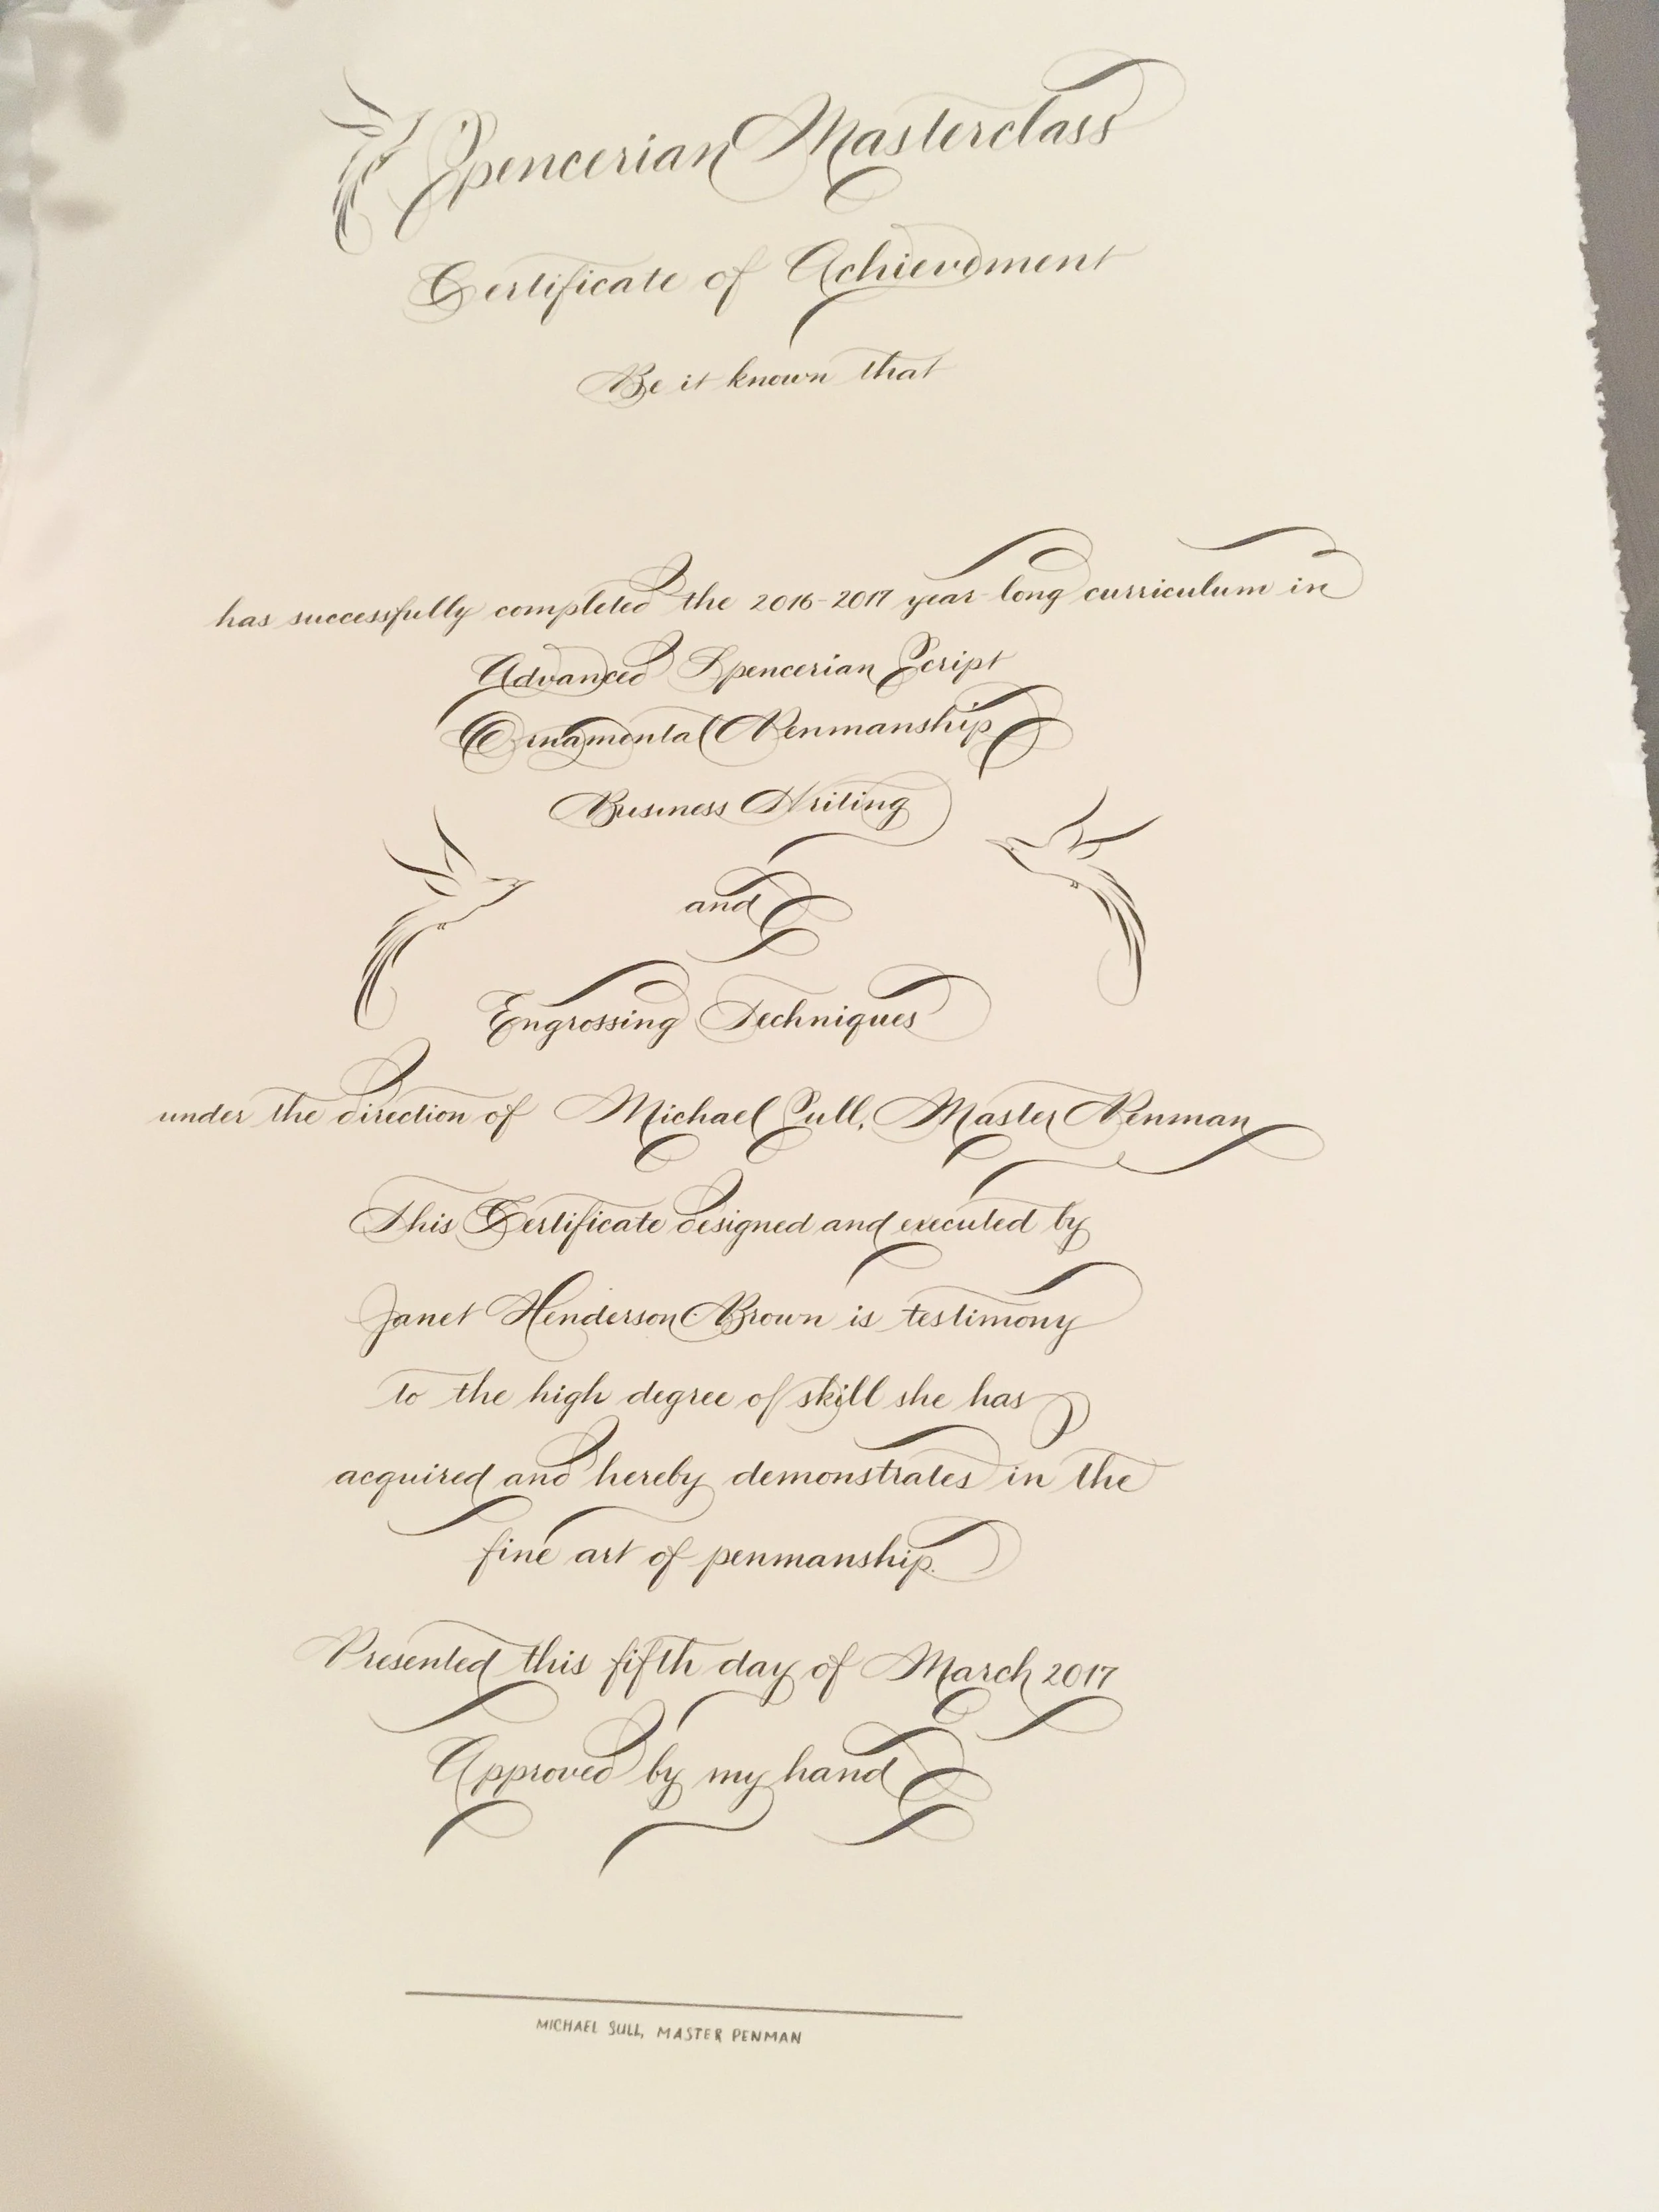 Spencerian Masterclass
Certificate of Achievement
Be it known that
has successfully completed the 2016-2017 year-long curriculum in
Advanced Spencerian Script
Ornamental Penmanship
Business Writing
and
Engrossing Techniques
under the direction of Michael Sull, Master Penman
This Certificate designed and executed by
Janet Henderson Brown is testimony
to the high degree of skill she has
acquired and hereby demonstrates in the
fine art of penmanship.
Presented this fifth day of March 2017
Approved by my hand
MICHAEL SULL, MASTER PENMAN